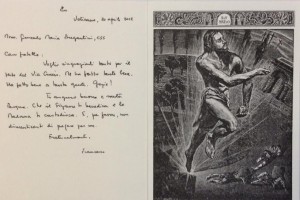 Vaticano, 20 aprile 2014
Mons. Giancarlo Maria Bregantini, CSS
Caro fratello:
Voglio ringraziarti tanto per il
testo del Via Crucis. Mi ha fatto tanto bene.
Ha fatto bene a tanta gente. Grazie!
Ti auguro buona e santa
Pasqua. Che il Signore ti benedica e la
Madonna ti custodisca. E, per favore, non
dimenticarti di pregare per me.
Fraternamente,
Francesco